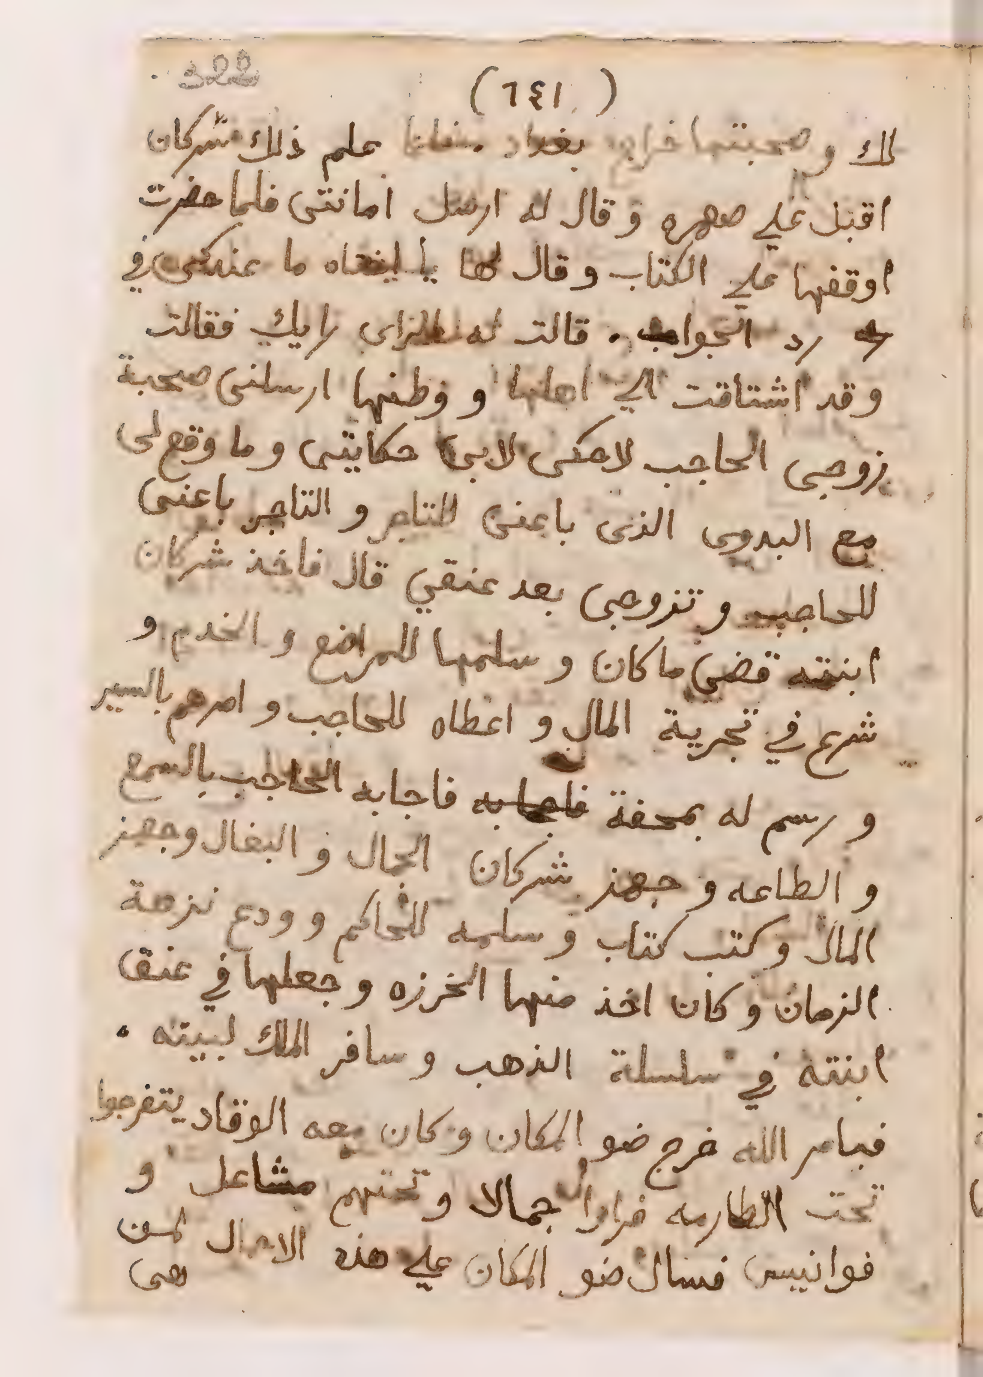 322
(٦٤١)
لك و صحبتها خراج بغداد فلما علم ذلك شركان
اقبل علي صهره و قال له ارسل امانتى فلما حضرت
اوقفها علي الكتاب و قال لها يا اختاه ما عندكى في
رد الجواب . قالت له الراى رايك فقالت
و قد اشتاقت الي اهلها و وطنها ارسلنى صحبة
زوجى الحاجب لاحكى لابى حكايتى و ما وقع لى
مع البدوى الذى باعنى للتاجر و التاجر باعنى
للحاجب و تزوجى بعد عتقي قال فاخذ شركان
ابنته قضى ماكان و سلمها للمراضع و الخدم و
شرع في تجرية المال و اعطاه للحاجب و امرهم بالسير
و رسم له بمحفة فاجابه فاجابه الحاجب بالسمع
و الطاعه و جهز شركان الجمال و البغال و جهز
المال و كتب كتاب و سلمه للحاكم و ودع نزهة
الزمان و كان اخذ منها الخرزه و جعلها في عنق
ابنته في سلسلة الذهب و سافر الملك لبيته .
فبامر الله خرج ضو المكان و كان معه الوقاد يتفرجوا
تحت الطارمه فراوا جمالا و تحتهم مشاعل و
فوانيس فسال ضو المكان علي هذه الاحمال لمن
هى